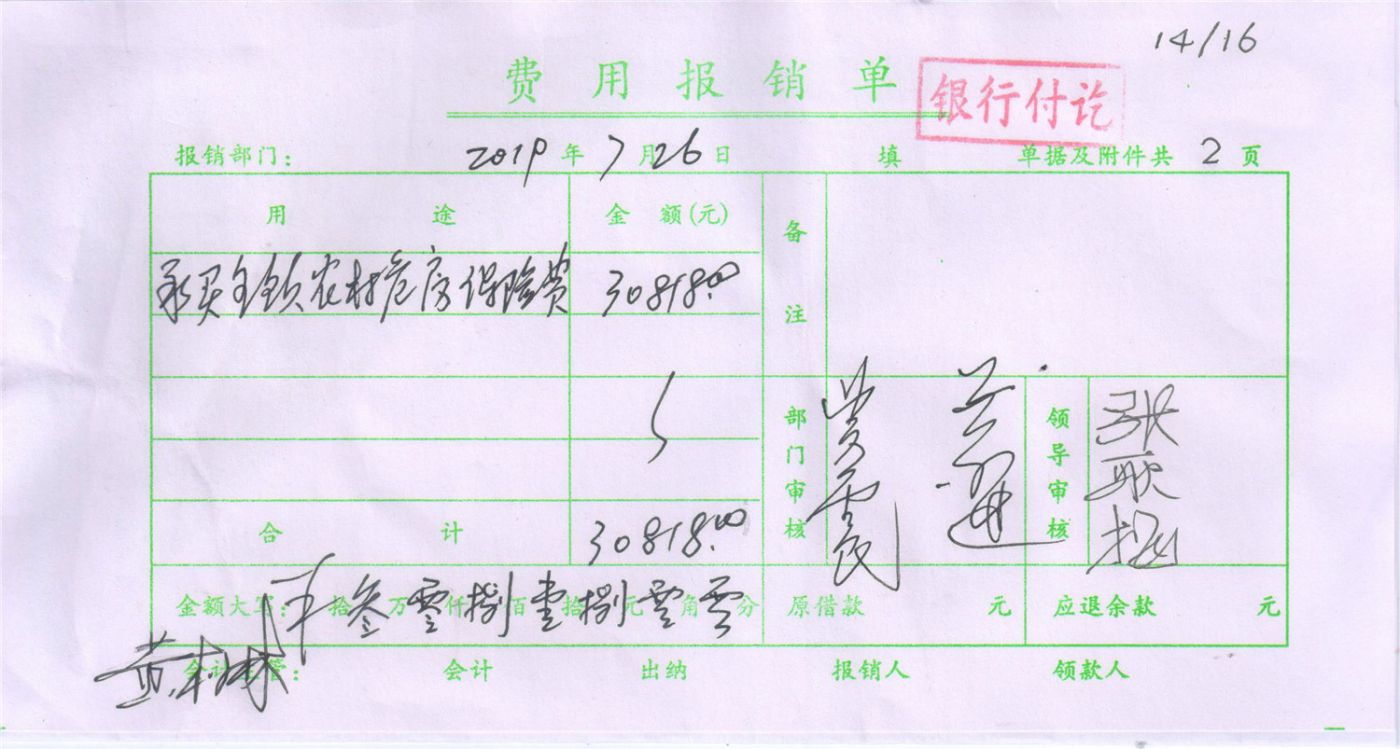 14/16
费用报销单
银行付讫
报销部门： 2019年7月26日 填 单据及附件共 2 页
用途 金额(元) 备注
全镇农村危房保险费 30818.00
部门审核 领导审核
合计 30818.00
金额大写： 拾叁万零仟捌百壹拾捌元零角零分 原借款 元 应退余款 元
会计主管： 会计 出纳 报销人 领款人